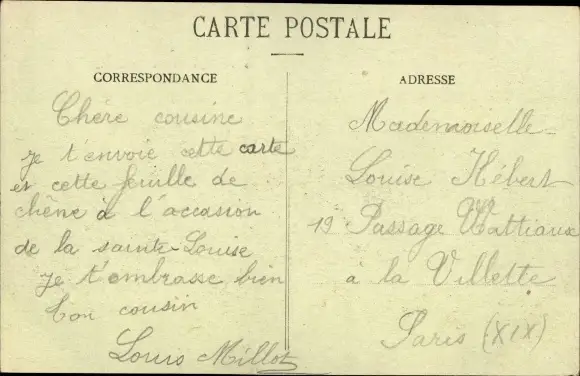 CARTE POSTALE
CORRESPONDANCE
Chère cousine
Je t'envoie cette carte
et cette feuille de
chêne à l'accasion
de la sainte-Louise
Je t'embrasse bien
ton cousin
Louis Millot
ADRESSE
Mademoiselle
Louise Hébert
19 Passage Wattiaux
à la Villette
Paris (XIX)